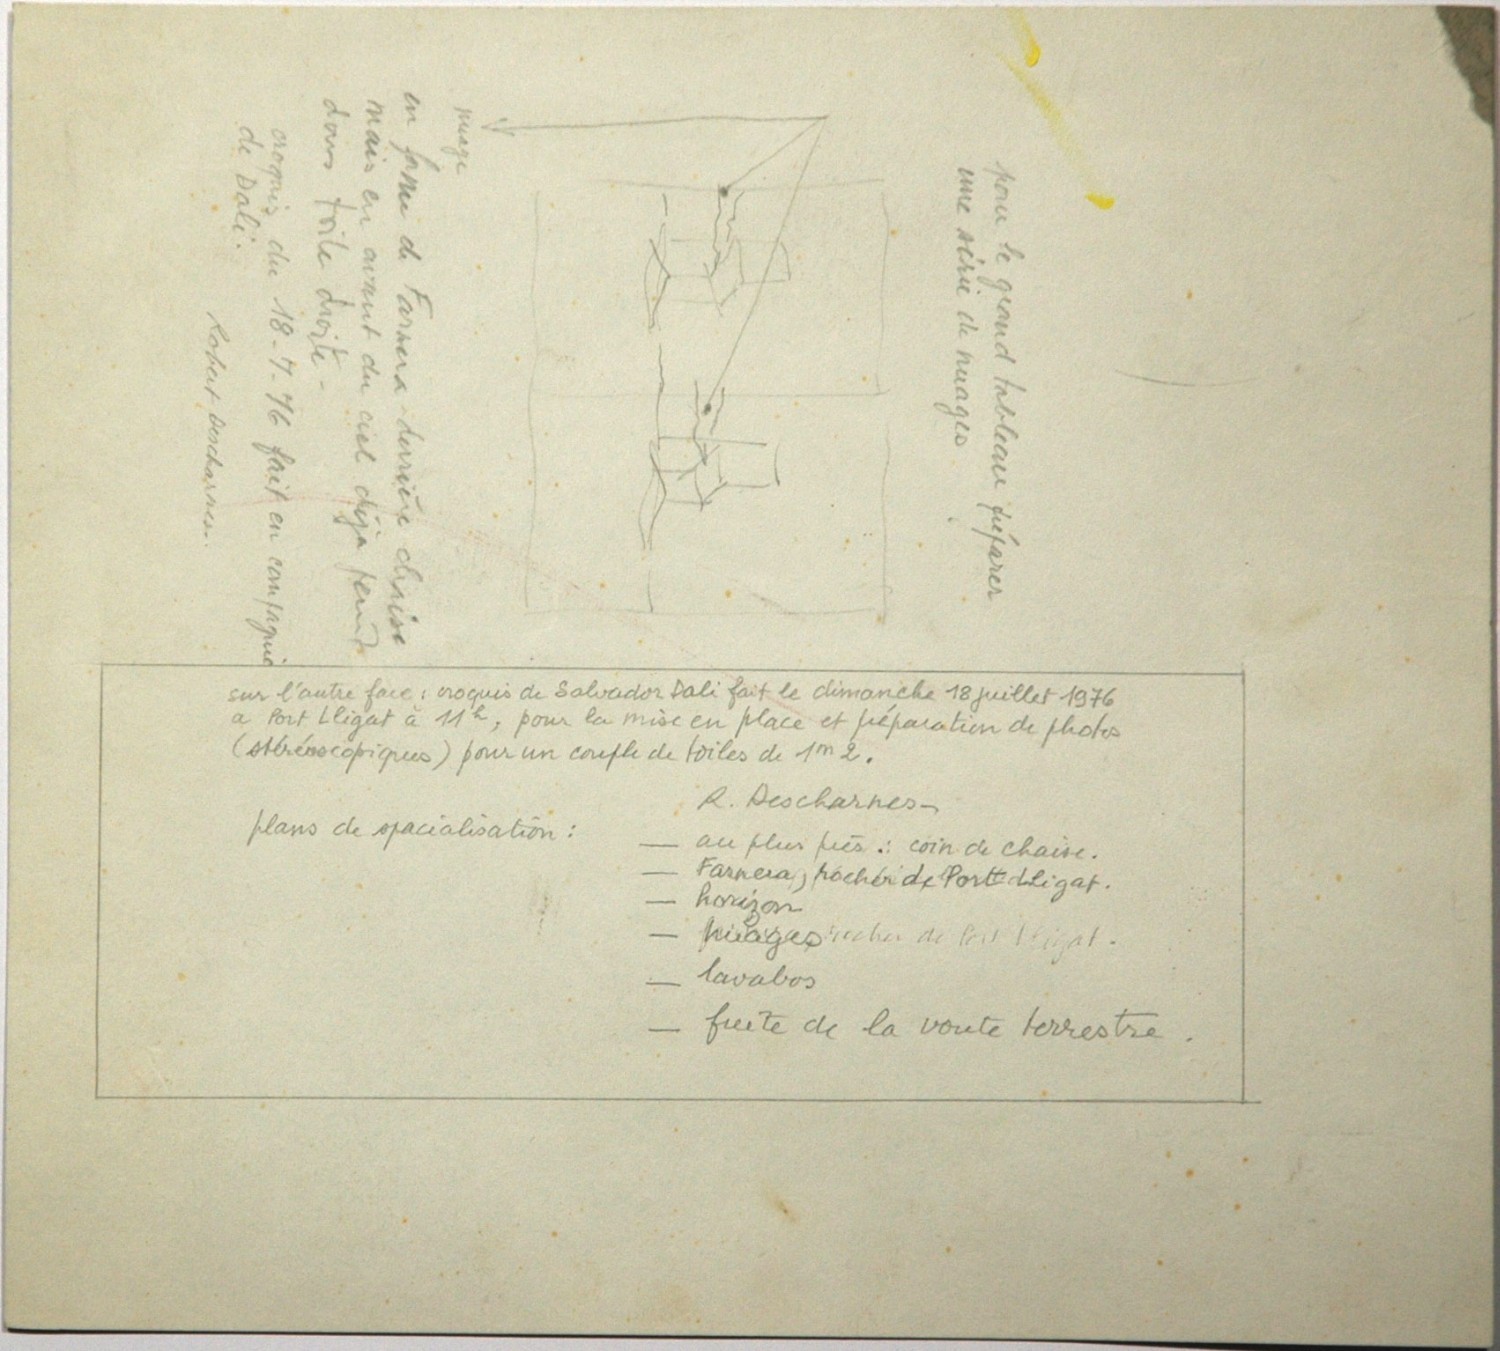 pour le grand tableau préparer
une série de nuages
nuage
en forme de Farnera derrière chaise
mais en avant du ciel déja peint
dans toile droite -
croquis du 18-7-76 fait en compagnie
de Dali.
Robert Descharnes.
sur l'autre face : croquis de Salvador Dali fait le dimanche 18 juillet 1976
a Port Lligat à 11h, pour la mise en place et préparation de photos
(stéréoscopiques) pour un couple de toiles de 1m2.
R. Descharnes
plans de spacialisation :
— au plus près : coin de chaise.
— Farnera, rocher de Port Lligat.
— horizon
— nuages rocher de Port Lligat.
— lavabos
— fuite de la voute terrestre.